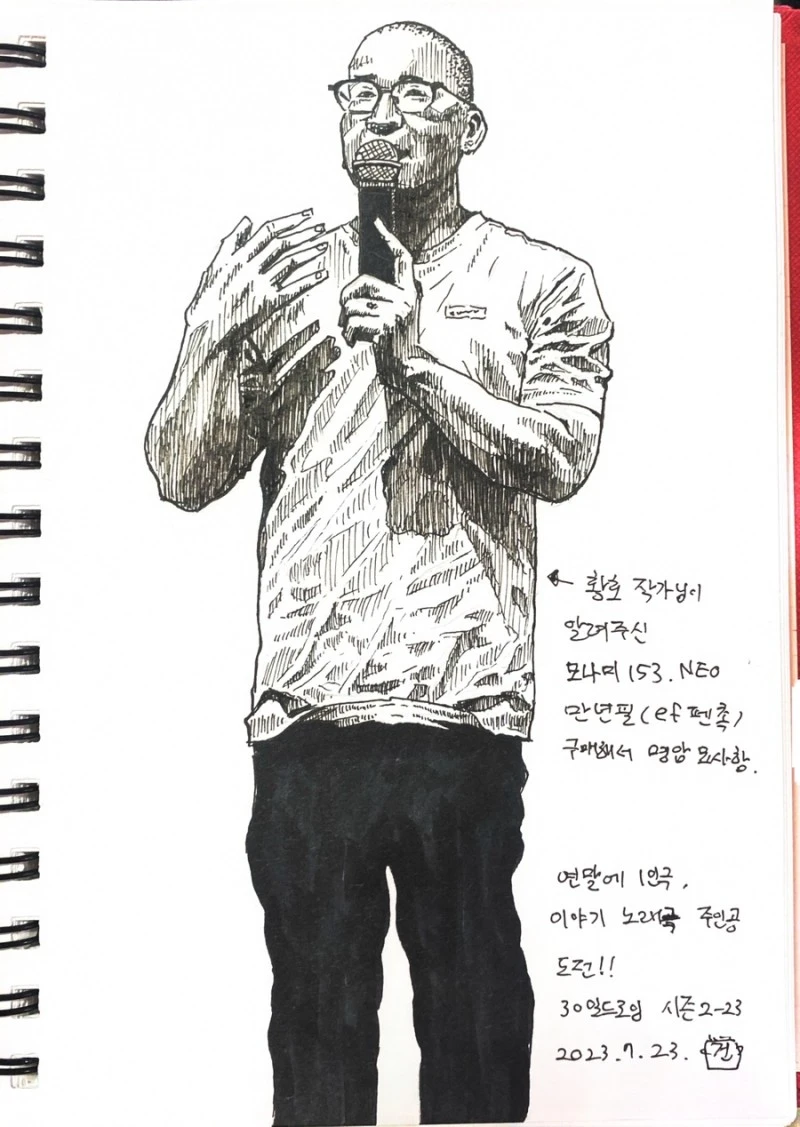 ← 황호 작가님이
알려주신
모나미 153. NEO
만년필(ef 펜촉)
구매해서 명암 묘사함.
연말에 1인극,
이야기 노래극 주인공
도전!!
30일드로잉 시즌2-23
2023.7.23. 건